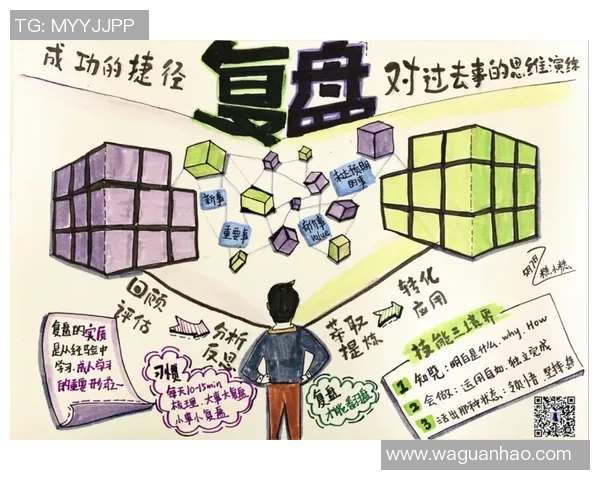 TG: MYYJJPP
成功的捷径
复盘
对过去事的思维演练
新事
重要事
未达预期的事
有价事
value
回顾
评估
分析
反思
萃取
提炼
转化
应用
复盘的实质
是从经验中
学习.成人学习
的重要形式之一
习惯
每天10-15min
梳理.大事大复盘
小事小复盘
复盘
才能看到盘
技能三境界
1 知晓:明白是什么.why.How
2 会做:运用自如.独立完成
3 活出那种状态:
www.waguanhao.com